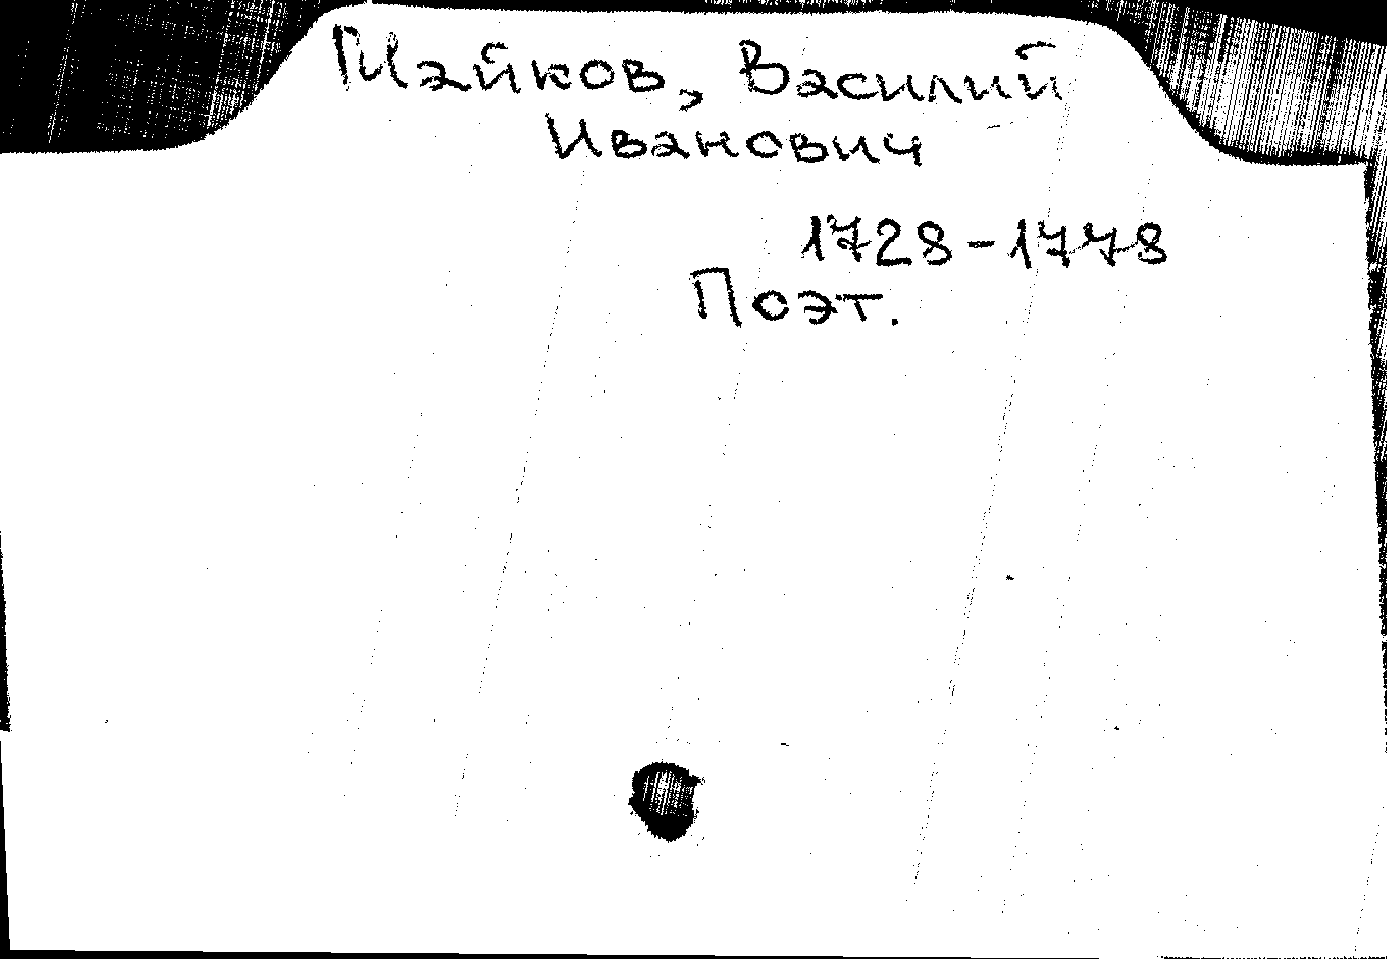 Майков, Василий
Иванович
1728-1778
Поэт.